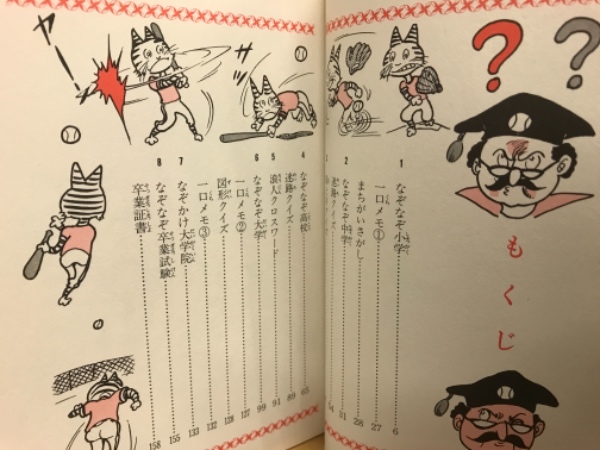 ??
もくじ
1 なぞなぞ小学 6
一口メモ① 27
まちがいさがし 28
2 なぞなぞ中学 31
迷路クイズ 54
4 なぞなぞ高校 65
迷路クイズ 89
5 浪人クロスワード 91
6 なぞなぞ大学 99
一口メモ② 127
図形クイズ 128
一口メモ③ 132
7 なぞかけ大学院 133
8 なぞなぞ卒業試験 155
卒業証書 158
サッ
ヤーッ